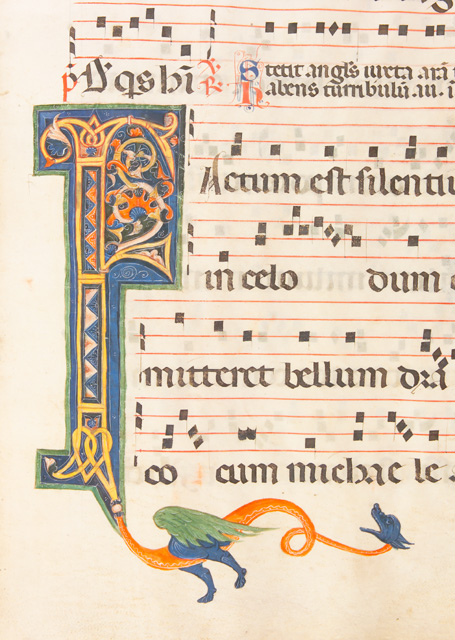 ℣. Stetit angls iuxta arā
℟. habens turribulū au. i
FActum est silentiu
in celo dum c
mitteret bellum dra
co cum michae le s